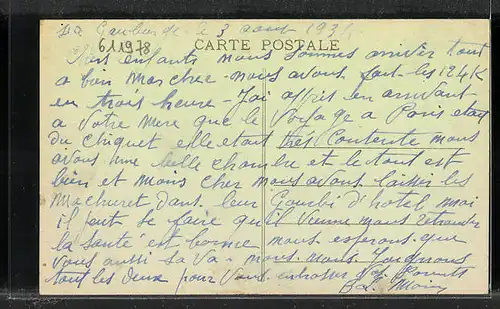 La le 3 aout 193
611978
CARTE POSTALE
enfants nous sommes arriver tout
a bien marcher nous avons fait les 124 K
en trois heure - J'ai appris en arrivant
a votre mere que le voyage a Paris etait
du chiquet elle etait très contente nous
avons une belle chambre et le tout est
bien et moins cher nous avons laisser les
dans leur Gourbi d'hotel mai
il peut se faire qu'il vienne nous retrouver
la santé est bonne nous esperons que
vous aussi sa va - nous nous
tout les deux pour vous embrasser Vos Parents